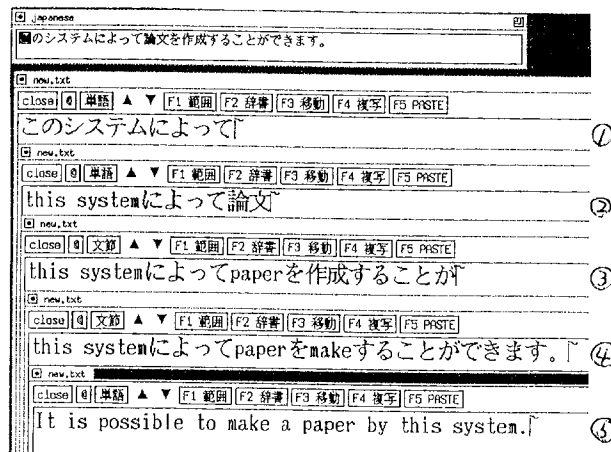 japanese
このシステムによって論文を作成することができます。
new.txt
close @ 単語 ▲ ▼ F1 範囲 F2 辞書 F3 移動 F4 複写 F5 PASTE
このシステムによって
①
new.txt
close @ 単語 ▲ ▼ F1 範囲 F2 辞書 F3 移動 F4 複写 F5 PASTE
this systemによって論文
②
new.txt
close @ 文節 ▲ ▼ F1 範囲 F2 辞書 F3 移動 F4 複写 F5 PASTE
this systemによってpaperを作成することが
③
new.txt
close @ 文節 ▲ ▼ F1 範囲 F2 辞書 F3 移動 F4 複写 F5 PASTE
this systemによってpaperをmakeすることができます。
④
new.txt
close @ 単語 ▲ ▼ F1 範囲 F2 辞書 F3 移動 F4 複写 F5 PASTE
It is possible to make a paper by this system.
⑤